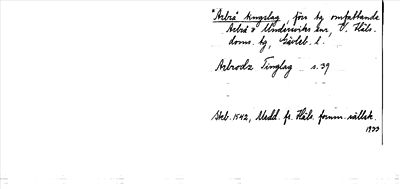 *Arbrå tingslag, förs tg omfattande
Arbrå o Undersviks snr, V. Häls.
doms. tg, Gävleb. l.
Arbrodz Tinglag s. 39
Skb. 1542, Medd. fr. Häls. fornm. sällsk.
1933